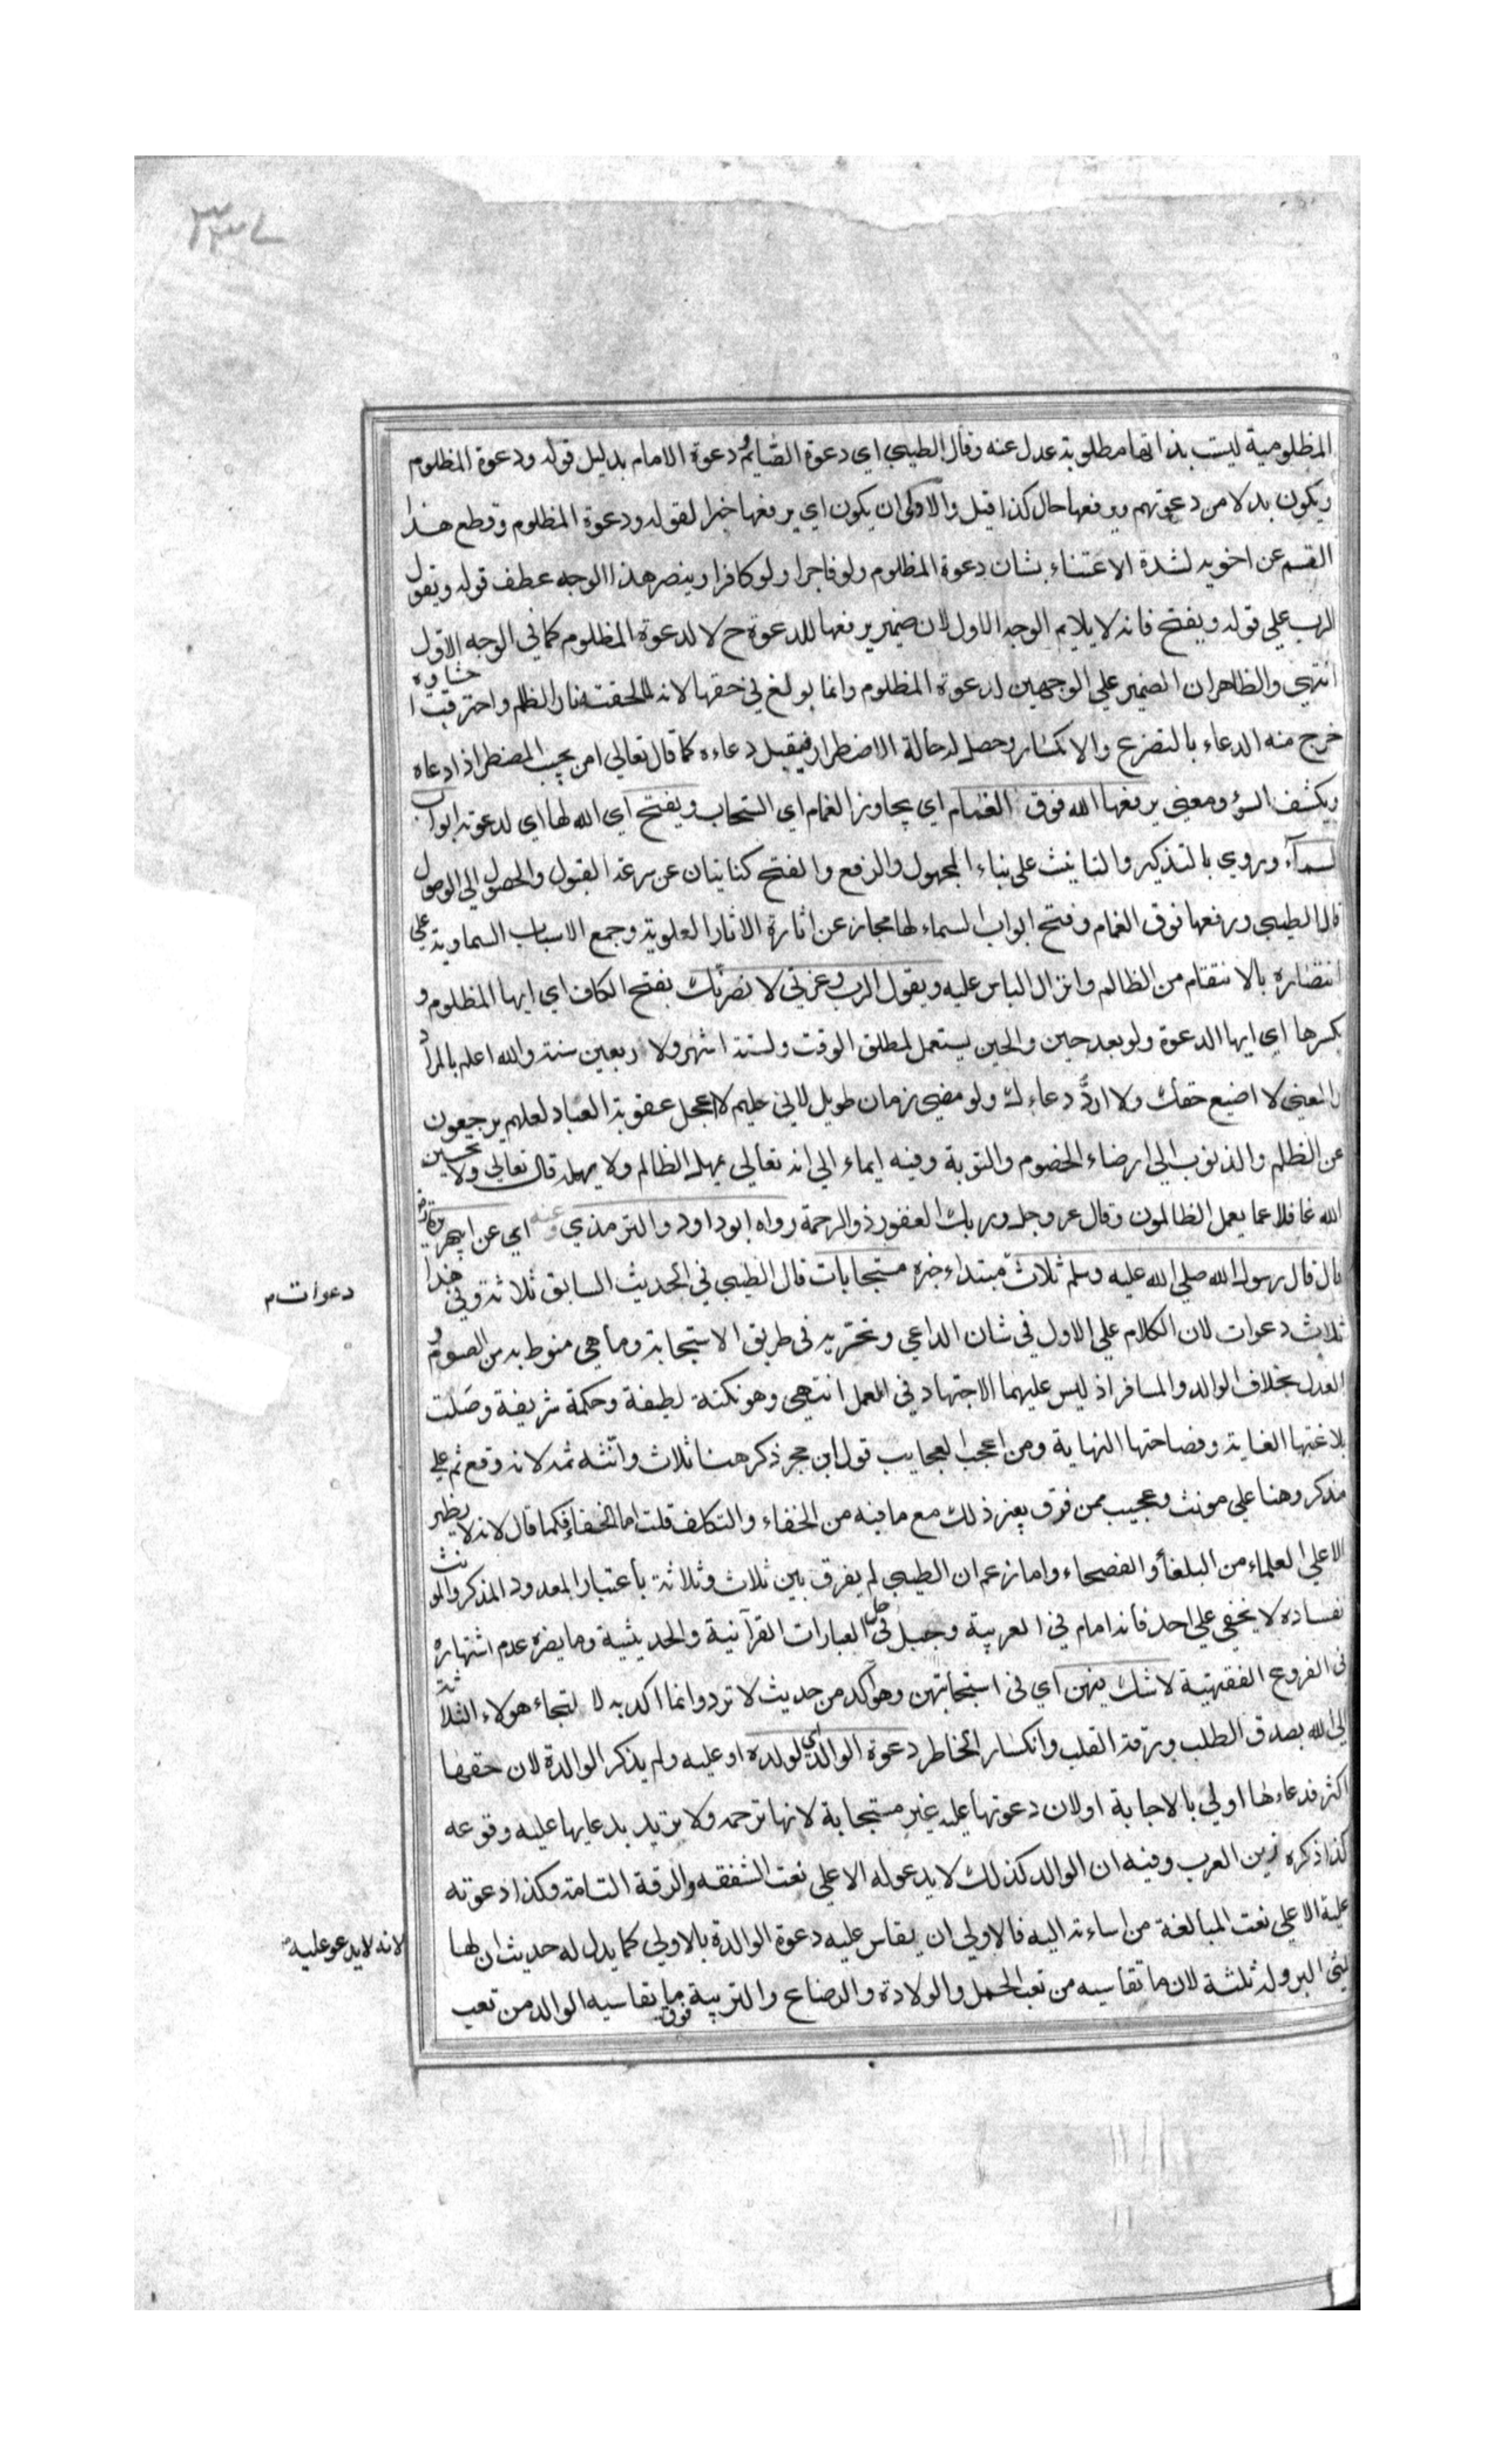 ٣٣٧
المظلومية ليست بذاتها مطلوبة عدل عنه وقال الطيبي اي دعوة الصّايم و دعوة الامام بدليل قوله ودعوة المظلوم
ويكون بدلا من دعوتهم ويرفعها حال كذا قيل والاولى ان يكون اي يرفعها خبرا لقوله ودعوة المظلوم وقطع هذا
القسم عن اخويه لشدة الاعتناء بشان دعوة المظلوم ولو فاجرا ولو كافرا وينصر هذا الوجه عطف قوله ويقول
الرب علي قوله ويفتح فانه لا يلايم الوجه الاول لان ضمير يرفعها للدعوة ح لا لدعوة المظلوم كما في الوجه الاول
انتهي والظاهر ان الضمير علي الوجهين لدعوة المظلوم وانما بولغ في حقها لانه لما لحقته نار الظلم واحترقت احشاوه
خرج منه الدعاء بالتضرع والانكسار وحصل له حالة الاضطرار فيقبل دعاءه كما قال تعالي امن يجيب المضطر اذا دعاه
ويكشف السؤ ومعني يرفعها الله فوق الغمام اي يجاوز الغمام اي السّحاب ويفتح اي الله لها اي لدعوته ابواب
السمآء وروي بالتذكير والتانيث علي بناء المجهول والرفع والفتح كنايتان عن سرعة القبول والحصول الي الوصول
قال الطيبي ورفعها فوق الغمام وفتح ابواب السماء لها مجاز عن اثارة الاثار العلوية وجمع الاسباب السماوية علي
انتصاره بالانتقام من الظالم وانزال الباس عليه ويقول الرب وعزتي لانصرنّك بفتح الكاف اي ايها المظلوم و
بكسرها اي ايها الدعوة ولو بعد حين والحين يستعمل لمطلق الوقت ولستة اشهر ولاربعين سنة والله اعلم بالمراد
والمعني لا اضيع حقك ولا اردُّ دعاءك ولو مضي زمان طويل لاني حليم لا اعجل عقوبة العباد لعلهم يرجعون
عن الظلم والذنوب الي ارضاء الخصوم والتوبة وفيه ايماء الي انه تعالي يمهل الظالم ولا يهمله قال تعالي ولا تحسبن
الله غافلا عما يعمل الظالمون وقال عز وجل وربك الغفور ذو الرحمة رواه ابو داود والترمذي وعنه اي عن ابي هريرة رض
قال قال رسول الله صلي الله عليه وسلم ثلاث مبتداء خبره مستجابات قال الطيبي في الحديث السابق ثلاثة وفي هذا
دعوات م
ثلاث دعوات لان الكلام علي الاول في شان الداعي وتحريه في طريق الاستجابة وما هي منوط به من الصوم و
العدل بخلاف الوالد والمسافر اذ ليس عليهما الاجتهاد في العمل انتهي وهو نكتة لطيفة وحكمة شريفة وصلت
بلاغتها الغاية وفصاحتها النهاية ومن اعجب العجايب قول ابن حجر ذكر هنا ثلاث وانّثه ثمه لانه وقع ثم علي
مذكر وهنا علي مونث وعجيب ممن فرق بغير ذلك مع ما فيه من الخفاء والتكلف قلت اما الخفاء فكما قال لانه لا يظهر
الا علي العلماء من البلغاء والفصحاء واما زعم ان الطيبي لم يفرق بين ثلاث وثلاثة باعتبار المعدود المذكر والمونث
نفساده لا يخفي علي احد فانه امام في العربية وجبل في حل العبارات القرآنية والحديثية وما يضره عدم اشتهاره
في الفروع الفقهية لا شك فيهن اي في استجابتهن وهو آكد من حديث لا ترد وانما اكد به لا لتجاء هولاء الثلاثة
الي الله بصدق الطلب ورقة القلب وانكسار الخاطر دعوة الوالد اي لولده او عليه ولم يذكر الوالدة لان حقها
اكثر فدعاءها اولي بالاجابة او لان دعوتها عليه غير مستجابة لانها ترحمه ولا تريد بدعايها عليه وقوعه
كذا ذكره زين العرب وفيه ان الوالد كذلك لا يدعو له الا علي نعت الشفقه والرقة التامة وكذا دعوته
لانه لا يدعو عليه
عليه الا علي نعت المبالغة من اساءته اليه فالاولي ان يقاس عليه دعوة الوالدة بالاولي كما يدل له حديث ان لها
ثلثي البر وله ثلثه لان ما تقاسيه من تعب الحمل والولادة والرضاع والتربية فوق ما يقاسيه الوالد من تعب